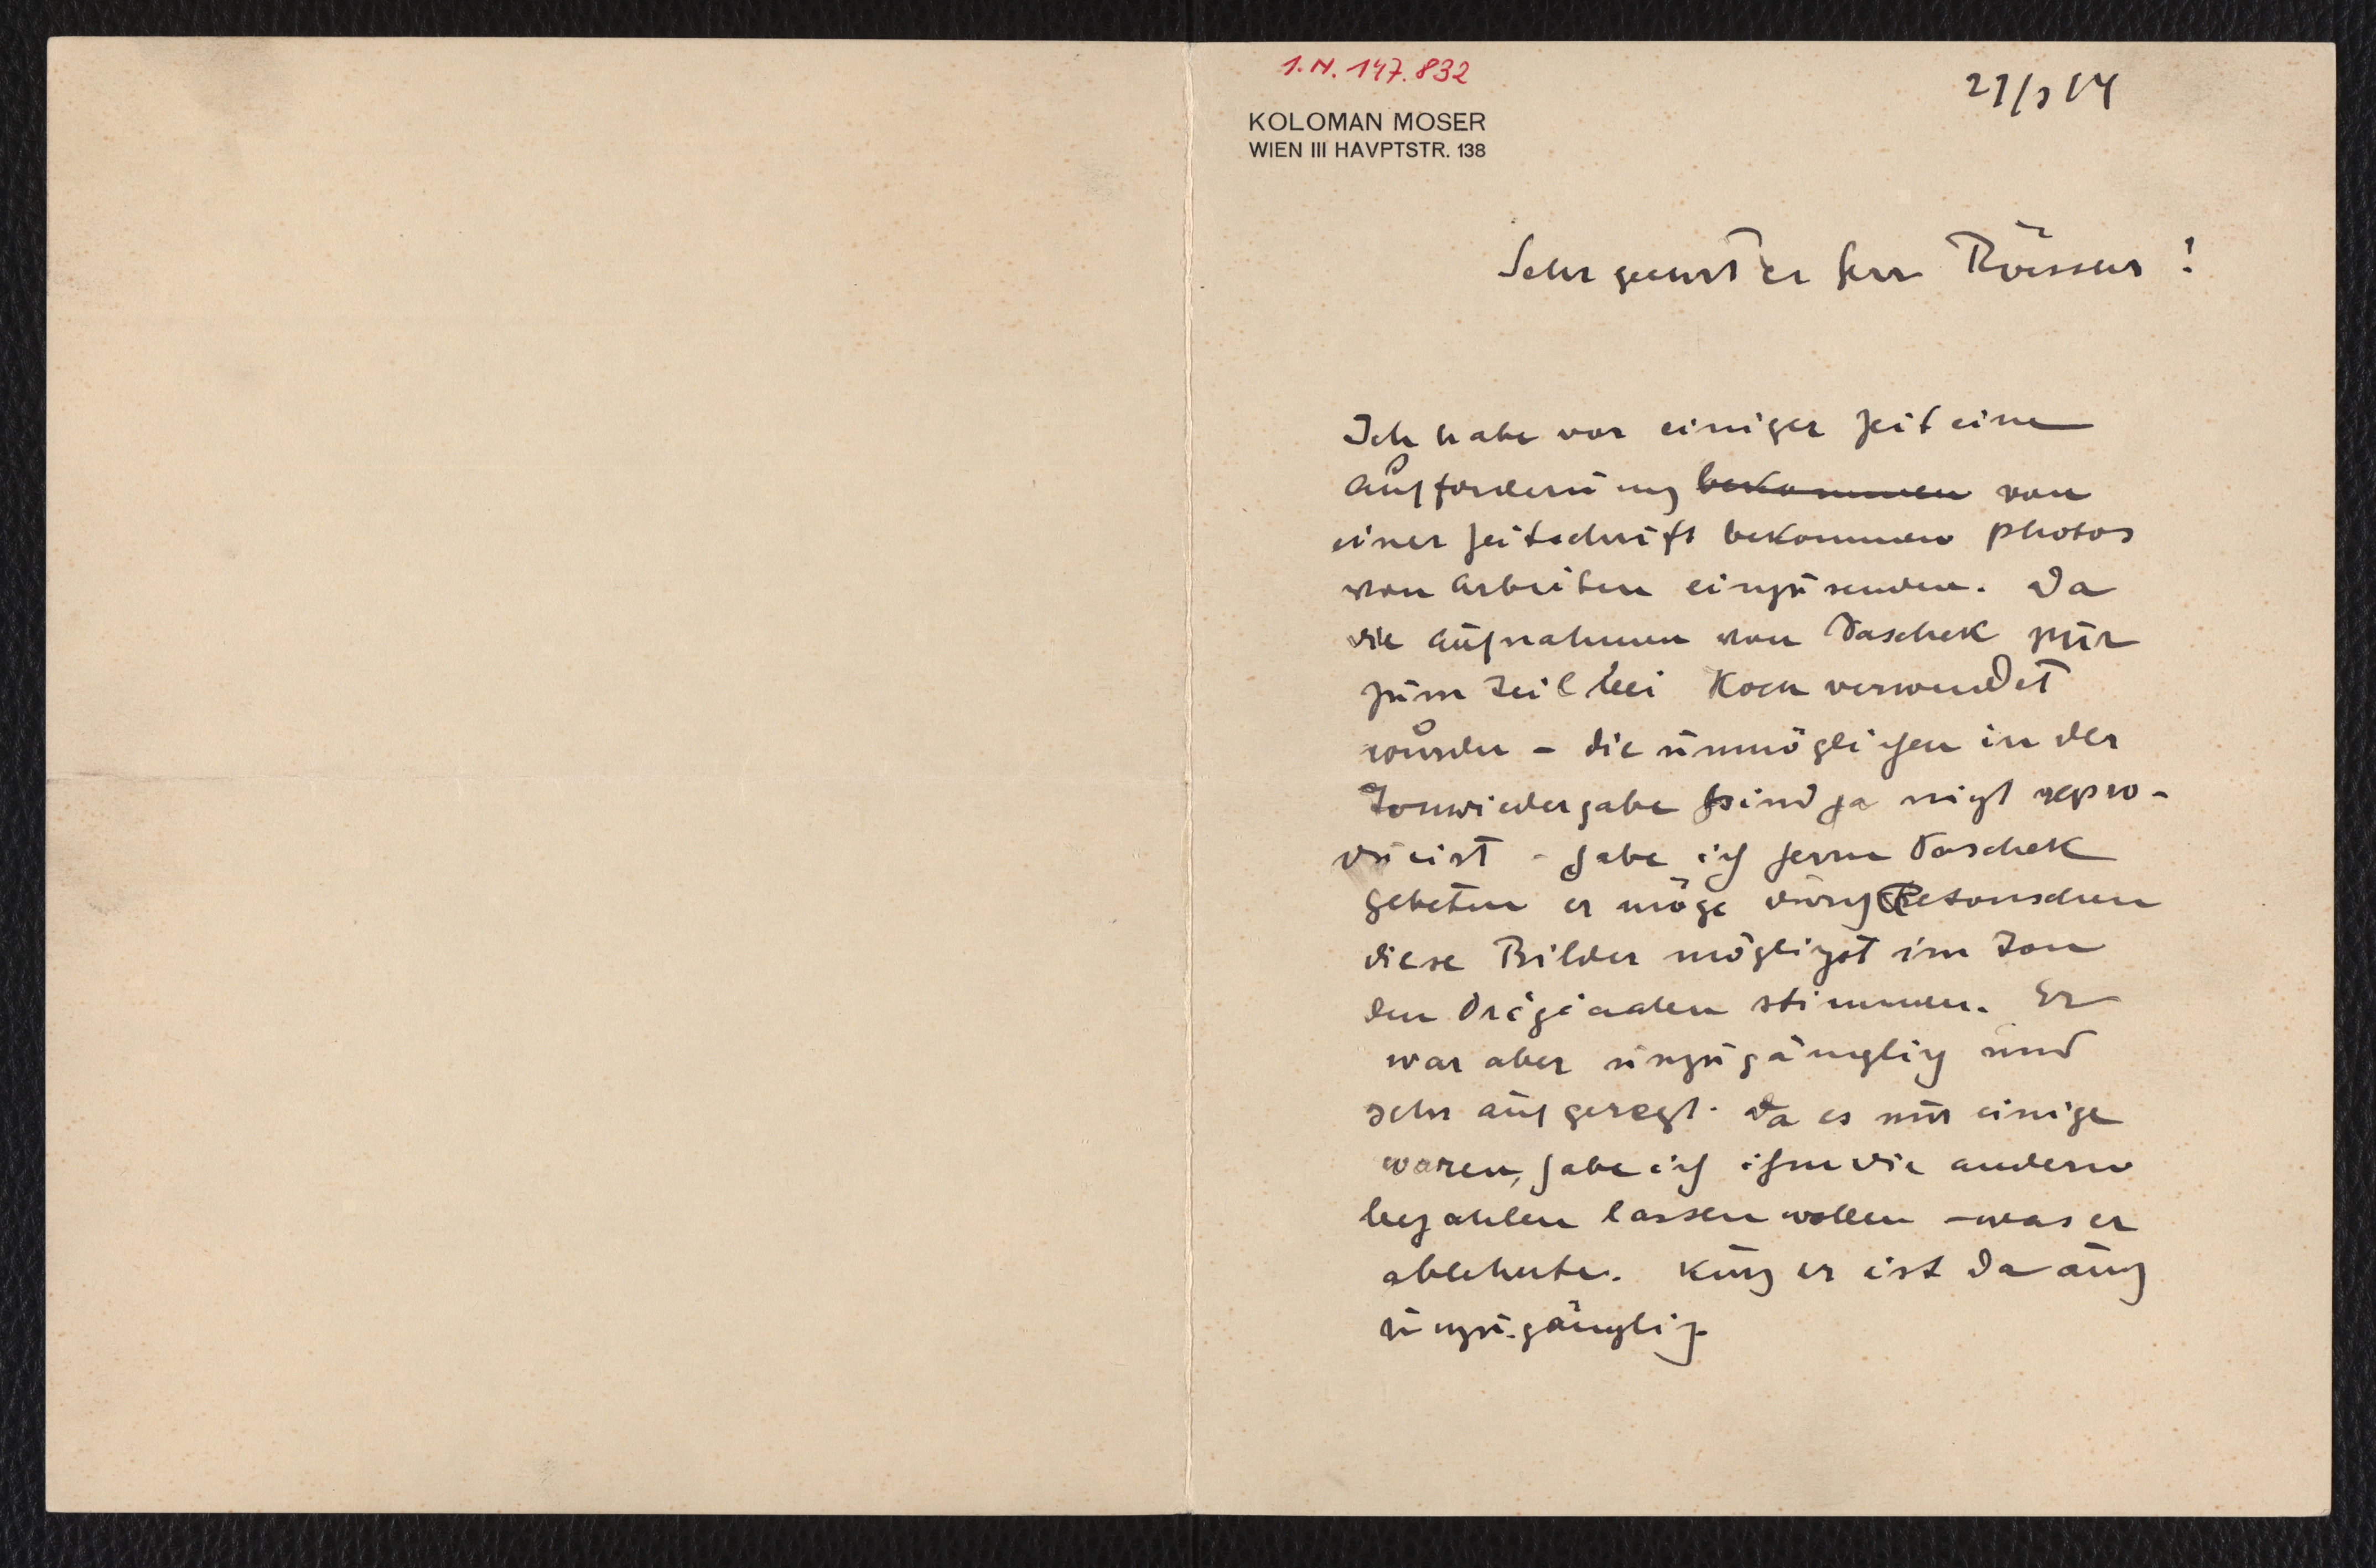 I.N. 147.832
KOLOMAN MOSER
WIEN III HAVPTSTR. 138
Sehr geehrter Herr Roessler!
Ich habe vor einiger Zeit eine
Aufforderung bekommen von
einer Zeitschrift bekommen Photos
von Arbeiten einzusenden. Da
die Aufnahmen von Paschek nur
zum Teil bei Koch verwendet
wurden – die unmöglichen in der
Tonwiedergabe sind ja nicht repro-
duciert – habe ich Herrn Paschek
gebeten er möge durch Retouschen
diese Bilder möglichst im Ton
den Originalen stimmen. Er
war aber unzugänglich und
sehr aufgeregt. Da es nur einige
waren, habe ich ihm die andern
bezahlen lassen wollen – was er
ablehnte. Kurz er ist da auch
unzugänglich.